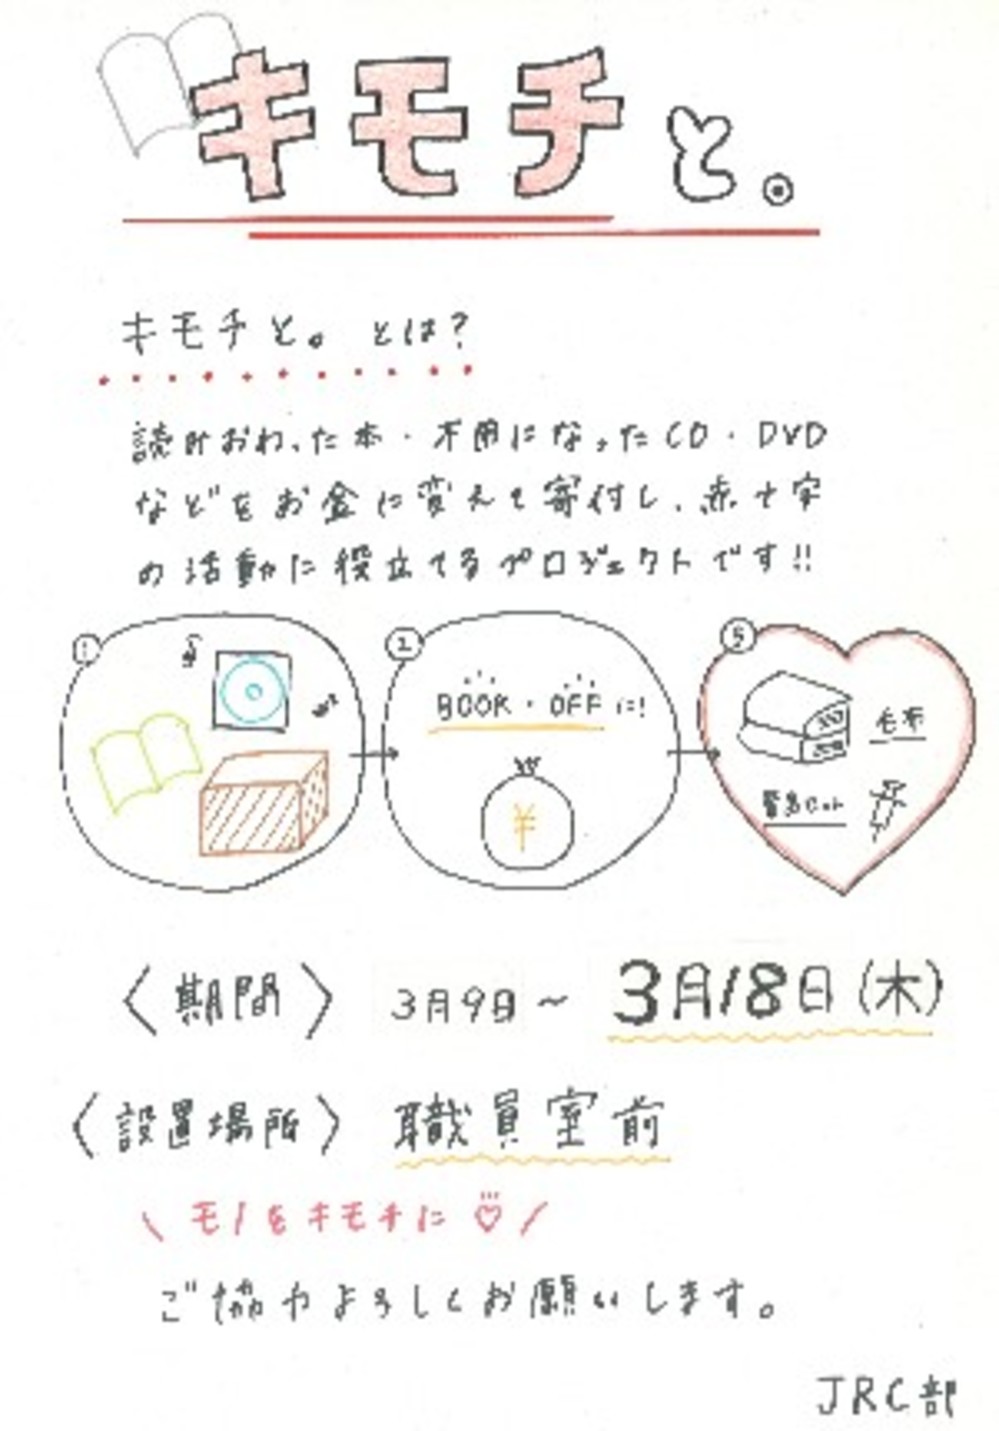 キモチと。
キモチと。とは?
読みおわった本・不用になったCD・DVD
などをお金に変えて寄付し、赤十字
の活動に役立てるプロジェクトです!!
①
②
BOOK・OFFに!
¥
③
毛布
緊急セット
〈期間〉 3月9日~3月18日(木)
〈設置場所〉 職員室前
\ モノをキモチに♡ /
ご協力よろしくお願いします。
JRC部